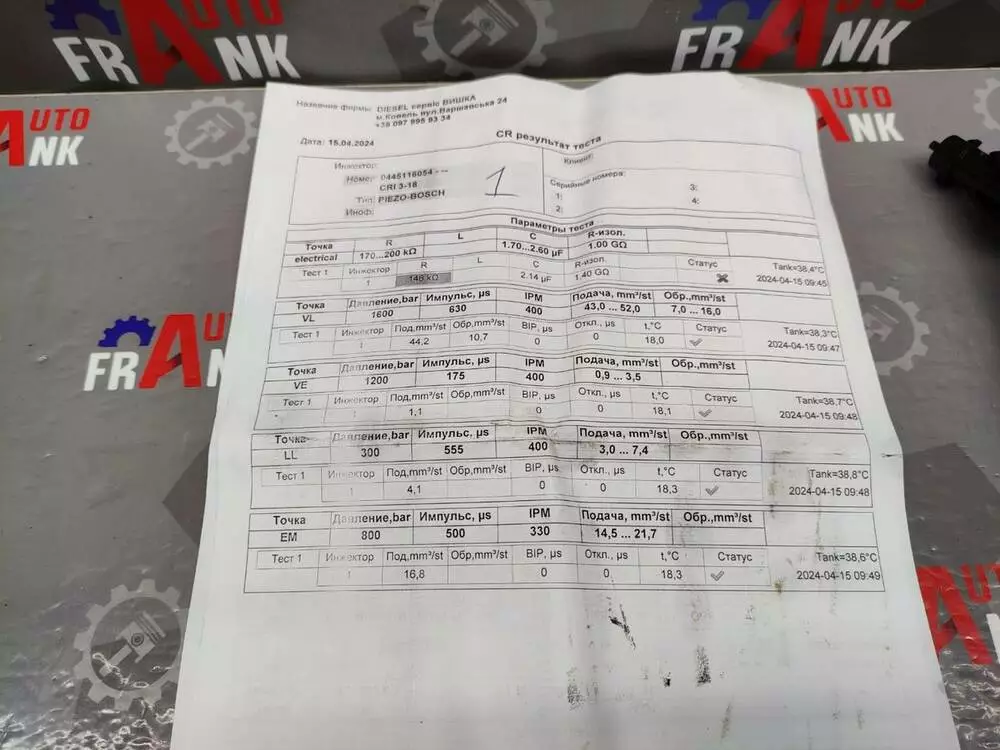 AUTO
FRANK
AUTO
FRANK
AUTO
NK
AUTO
FRANK
AUTO
NK
Название фирмы: DIESEL сервіс ВИШКА
м.Ковель вул.Варшавська 24
+38 097 995 93 34
Дата: 15.04.2024
CR результат теста
Инжектор:
Номер: 0445116054 ---
CRI 3-18
Тип: PIEZO-BOSCH
Иноф:
1
Клиент:
Серийные номера:
1: 3:
2: 4:
Параметры теста
Точка R L C R-изол.
electrical 170...200 kΩ 1.70...2.60 µF 1.00 GΩ
Тест 1 Инжектор R L C R-изол. Статус Tank=38,4°C
1 148 kΩ 2.14 µF 1.40 GΩ 2024-04-15 09:45
Точка Давление,bar Импульс, µs IPM Подача, mm³/st Обр.,mm³/st
VL 1600 630 400 43,0 ... 52,0 7,0 ... 16,0
Тест 1 Инжектор Под,mm³/st Обр,mm³/st BIP, µs Откл., µs t,°C Статус Tank=38,3°C
1 44,2 10,7 0 0 18,0 2024-04-15 09:47
Точка Давление,bar Импульс, µs IPM Подача, mm³/st Обр.,mm³/st
VE 1200 175 400 0,9 ... 3,5
Тест 1 Инжектор Под,mm³/st Обр,mm³/st BIP, µs Откл., µs t,°C Статус Tank=38,7°C
1 1,1 0 0 18,1 2024-04-15 09:48
Точка Давление,bar Импульс, µs IPM Подача, mm³/st Обр.,mm³/st
LL 300 555 400 3,0 ... 7,4
Тест 1 Инжектор Под,mm³/st Обр,mm³/st BIP, µs Откл., µs t,°C Статус Tank=38,8°C
1 4,1 0 0 18,3 2024-04-15 09:48
Точка Давление,bar Импульс, µs IPM Подача, mm³/st Обр.,mm³/st
EM 800 500 330 14,5 ... 21,7
Тест 1 Инжектор Под,mm³/st Обр,mm³/st BIP, µs Откл., µs t,°C Статус Tank=38,6°C
1 16,8 0 0 18,3 2024-04-15 09:49